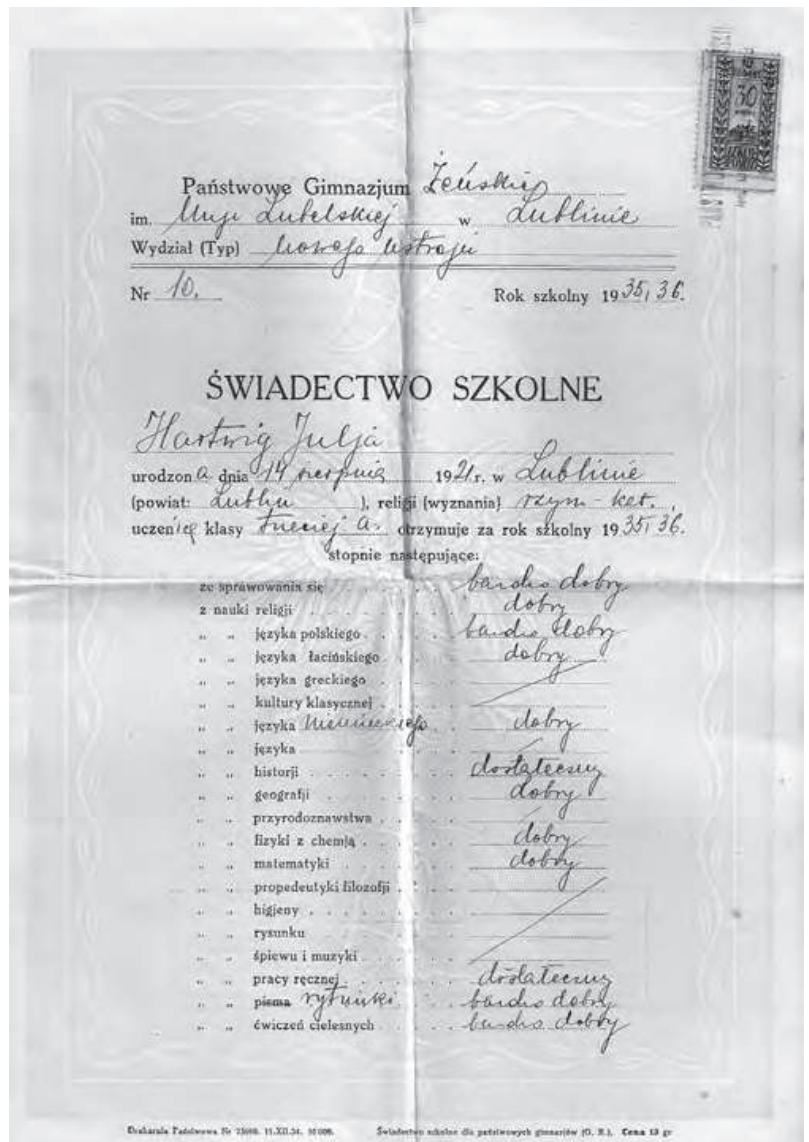 30
Państwowe Gimnazjum Żeńskie
im. Unji Lubelskiej w Lublinie
Wydział (Typ) nowego ustroju
Nr 10. Rok szkolny 1935/36.
ŚWIADECTWO SZKOLNE
Hartwig Julja
urodzona dnia 14 sierpnia 1921 r. w Lublinie
(powiat: Lublin), religji (wyznania) rzym-kat.
uczenicę klasy trzeciej a. otrzymuje za rok szkolny 1935/36.
stopnie następujące:
ze sprawowania się bardzo dobry
z nauki religji dobry
„ „ języka polskiego bardzo dobry
„ „ języka łacińskiego dobry
„ „ języka greckiego
„ „ kultury klasycznej
„ „ języka niemieckiego dobry
„ „ języka
„ „ historji dostateczny
„ „ geografji dobry
„ „ przyrodoznawstwa
„ „ fizyki z chemją dobry
„ „ matematyki dobry
„ „ propedeutyki filozofji
„ „ higjeny
„ „ rysunku
„ „ śpiewu i muzyki
„ „ pracy ręcznej dostateczny
„ „ pisma rysunki bardzo dobry
„ „ ćwiczeń cielesnych bardzo dobry
Drukarnia Państwowa Nr 11.XII.34. Świadectwo szkolne dla państwowych gimnazjów Cena 13 gr